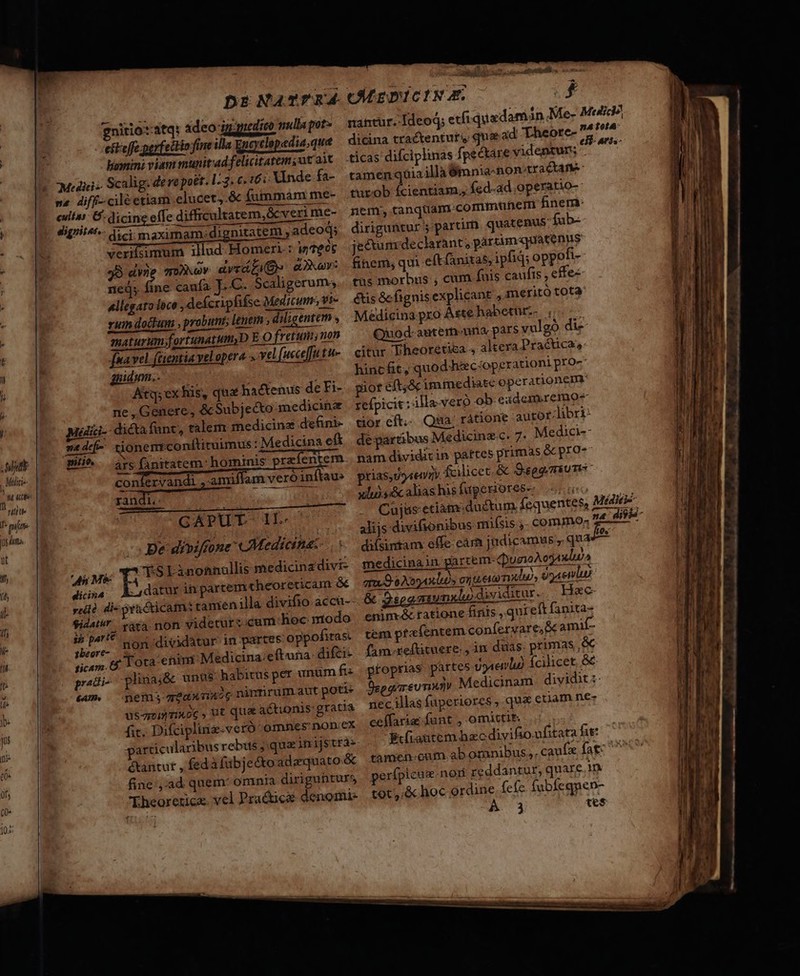 DE NATVRA MEDICINÆ. 5
gnitio: atq; adeo in medico nulla pot-
est esse perfectio sine illa Encyclopedia, quæ
homini viam munit ad felicitatem, ut ait
Scalig. de re poët. l. 3. c. 16. Unde fa-
cilè etiam elucet, & summam me-
dicinę esse difficultatem, & veri me-
dici maximam dignitatem, adeoq;
verissimum illud Homeri: ἰητρὸς
γὸ ἀνὴρ πολλῶν ἀντάξι@ ἄλλων:
neq; sine causa J. C. Scaligerum,
allegato loco, descripsisse Medicum, vi-
rum doctum, probum, lenem, diligentem,
maturum, fortunatum, D E O fretum; non
sua vel scientia vel opera, vel successu tu-
midum.
Medici-
næ diffi-
cultas &
dignitas.
Atq; ex his, quæ hactenus de Fi-
ne, Genere, & Subjecto medicinæ
dicta sunt, talem medicinæ defini-
tionem constituimus: Medicina est
ars sanitatem hominis præsentem
conservandi, amissam verò instau-
randi.
Medici-
næ defi-
nitio.
CAPUT II.
De divisione Medicinæ.
ETSI à nonnullis medicina divi-
datur in partem theoreticam &
practicam: tamen illa divisio accu-
rata non videtur: cum hoc modo
non dividatur in partes oppositas.
Tota enim Medicina est una disci-
plina, & unus habitus per unum fi-
nem; πρακτικὸς nimirum aut poti-
us ποιητικὸς, ut quæ actionis gratia
fit. Disciplinæ verò omnes non ex
particularibus rebus, quæ in ijs tra-
ctantur, sed à subjecto adæquato &
fine, ad quem omnia diriguntur,
Theoreticæ vel Practicæ denomi-
An Me-
dicina
rectè di-
vidatur
in parte
theore-
ticam &
practi-
cam.
nantur. Ideoq; etsi quædam in Me-
dicina tractentur, quæ ad Theore-
ticas disciplinas spectare videntur;
tamen quia illa omnia non tractan-
tur ob scientiam, sed ad operatio-
nem, tanquam communem finem
diriguntur; partim quatenus sub-
jectum declarant, partim quatenus
finem, qui est sanitas, ipsiq; opposi-
tus morbus, cum suis causis, effe-
ctis & signis explicant, meritò tota
Medicina pro Arte habetur.
Medicin.
na tota
est ars.
Quod autem una pars vulgò di-
citur Theoretica, altera Practica,
hinc fit, quod hæc operationi pro-
pior est, & immediatè operationem
respicit: illa verò ob eadem remo-
tior est. Qua ratione autor libri
de partibus Medicinæ c. 7. Medici-
nam dividit in partes primas & pro-
prias, ὑγιεινὴν scilicet & θεραπευτι-
κὴν, & alias his superiores.
Cujus etiam ductum sequentes,
alijs divisionibus missis, commo-
dissimam esse eam judicamus, quæ
medicina in partem Φυσιολογικὴν
παθολογικὴν σημειωτικὴν, ὑγιεινὴν
& θεραπευτικὴν dividitur. Hæc
enim & ratione finis, qui est sanita-
tem præsentem conservare, & amis-
sam restituere, in duas primas, &
proprias partes ὑγιεινὴν scilicet &
θεραπευτικὴν Medicinam dividit:
nec illas superiores, quæ etiam ne-
cessariæ sunt, omittit.
Medici-
næ divi-
sio.
Etsi autem hæc divisio usitata sit:
tamen cum ab omnibus, causæ sat
perspicuæ non reddantur, quare in
tot, & hoc ordine sese subsequen-
A 3 tes